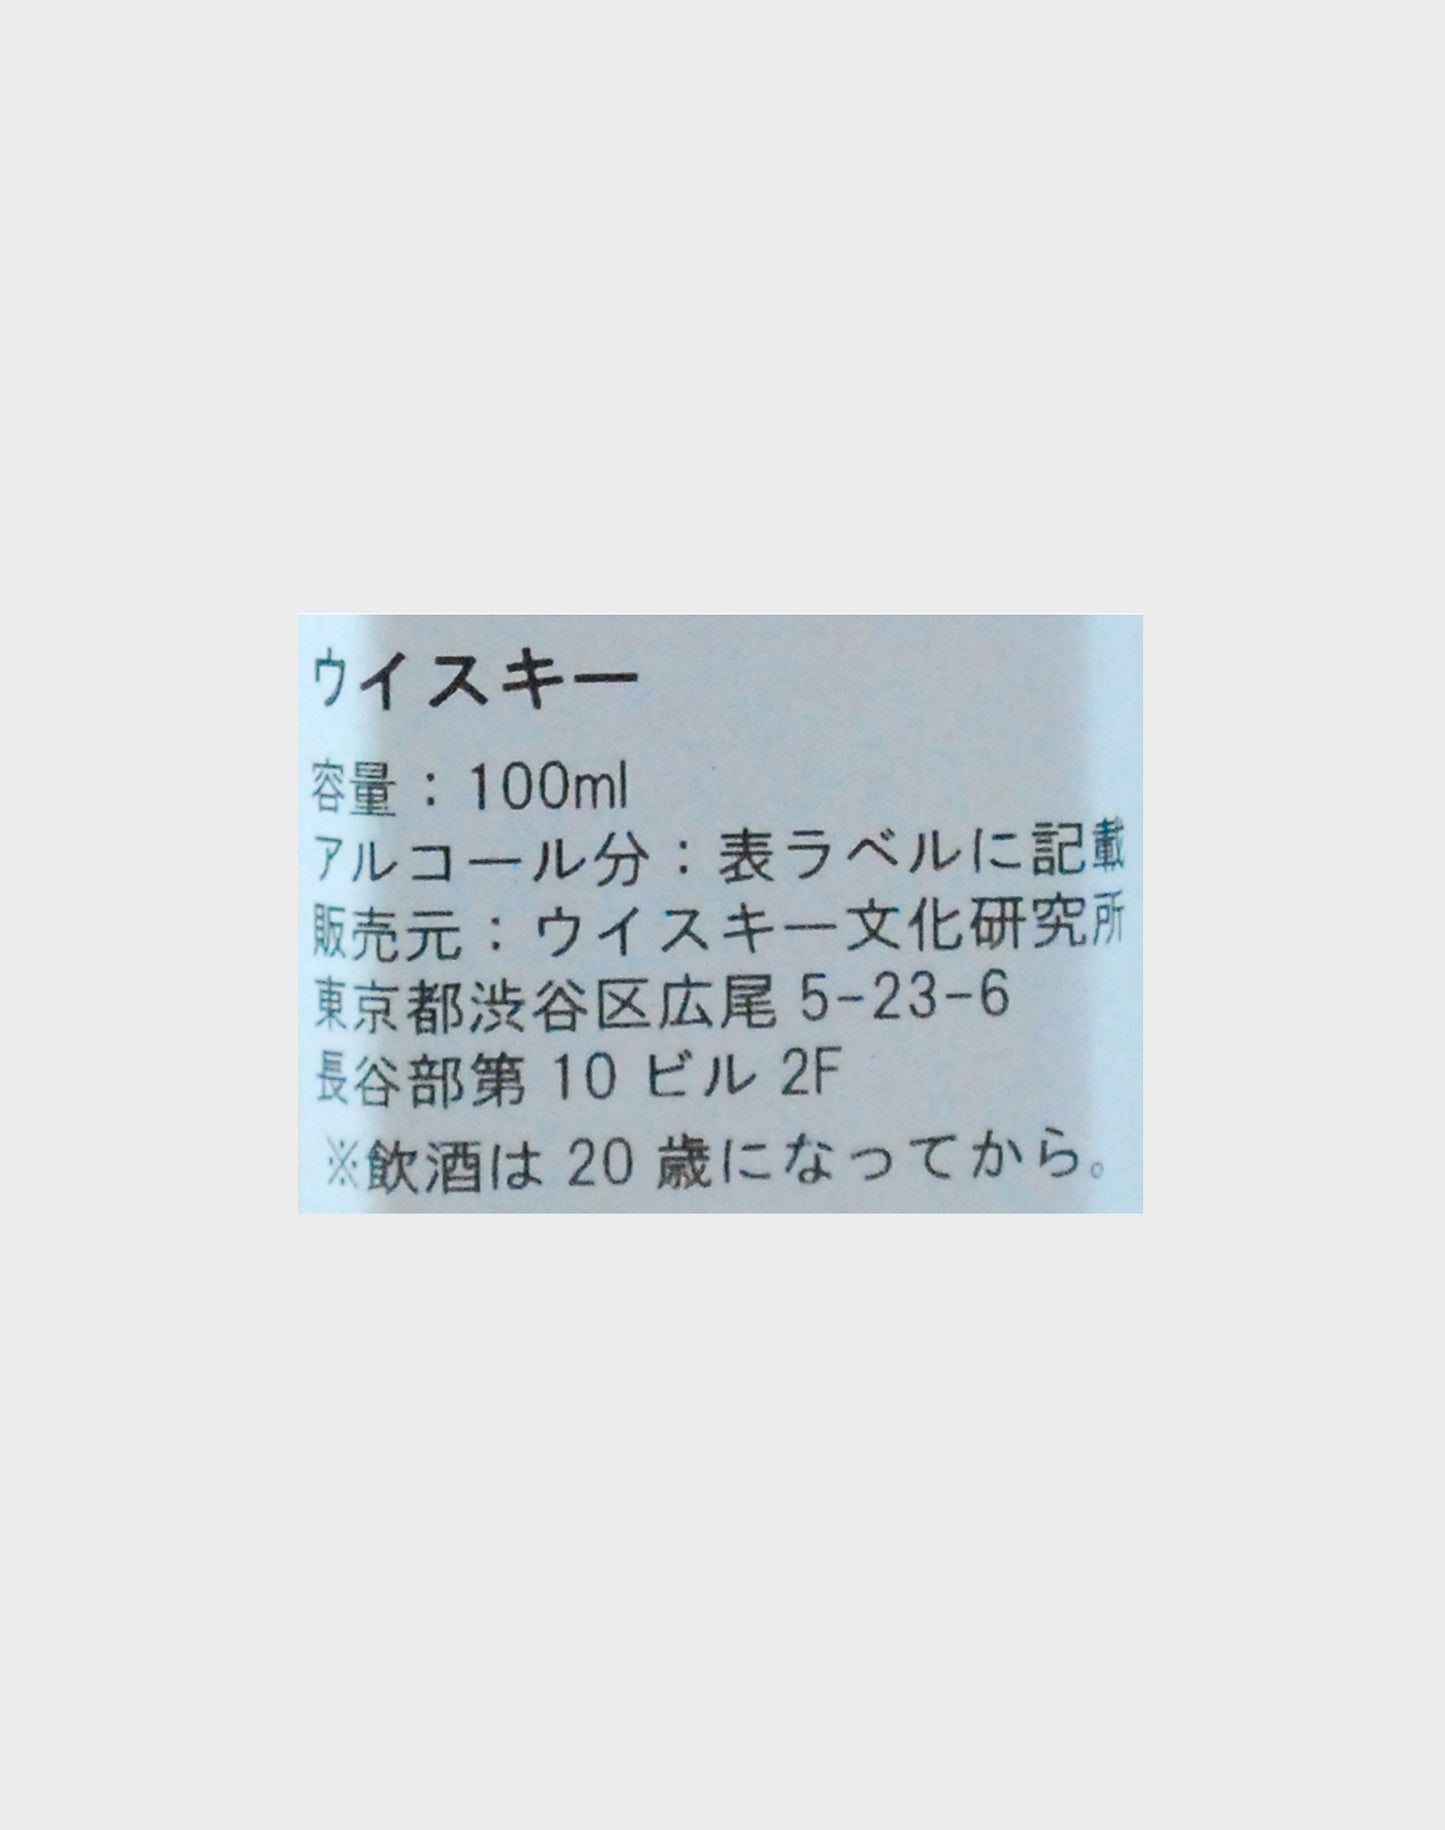 ウイスキー
容量：100ml
アルコール分：表ラベルに記載
販売元：ウイスキー文化研究所
東京都渋谷区広尾 5-23-6
長谷部第 10 ビル 2F
※飲酒は 20 歳になってから。